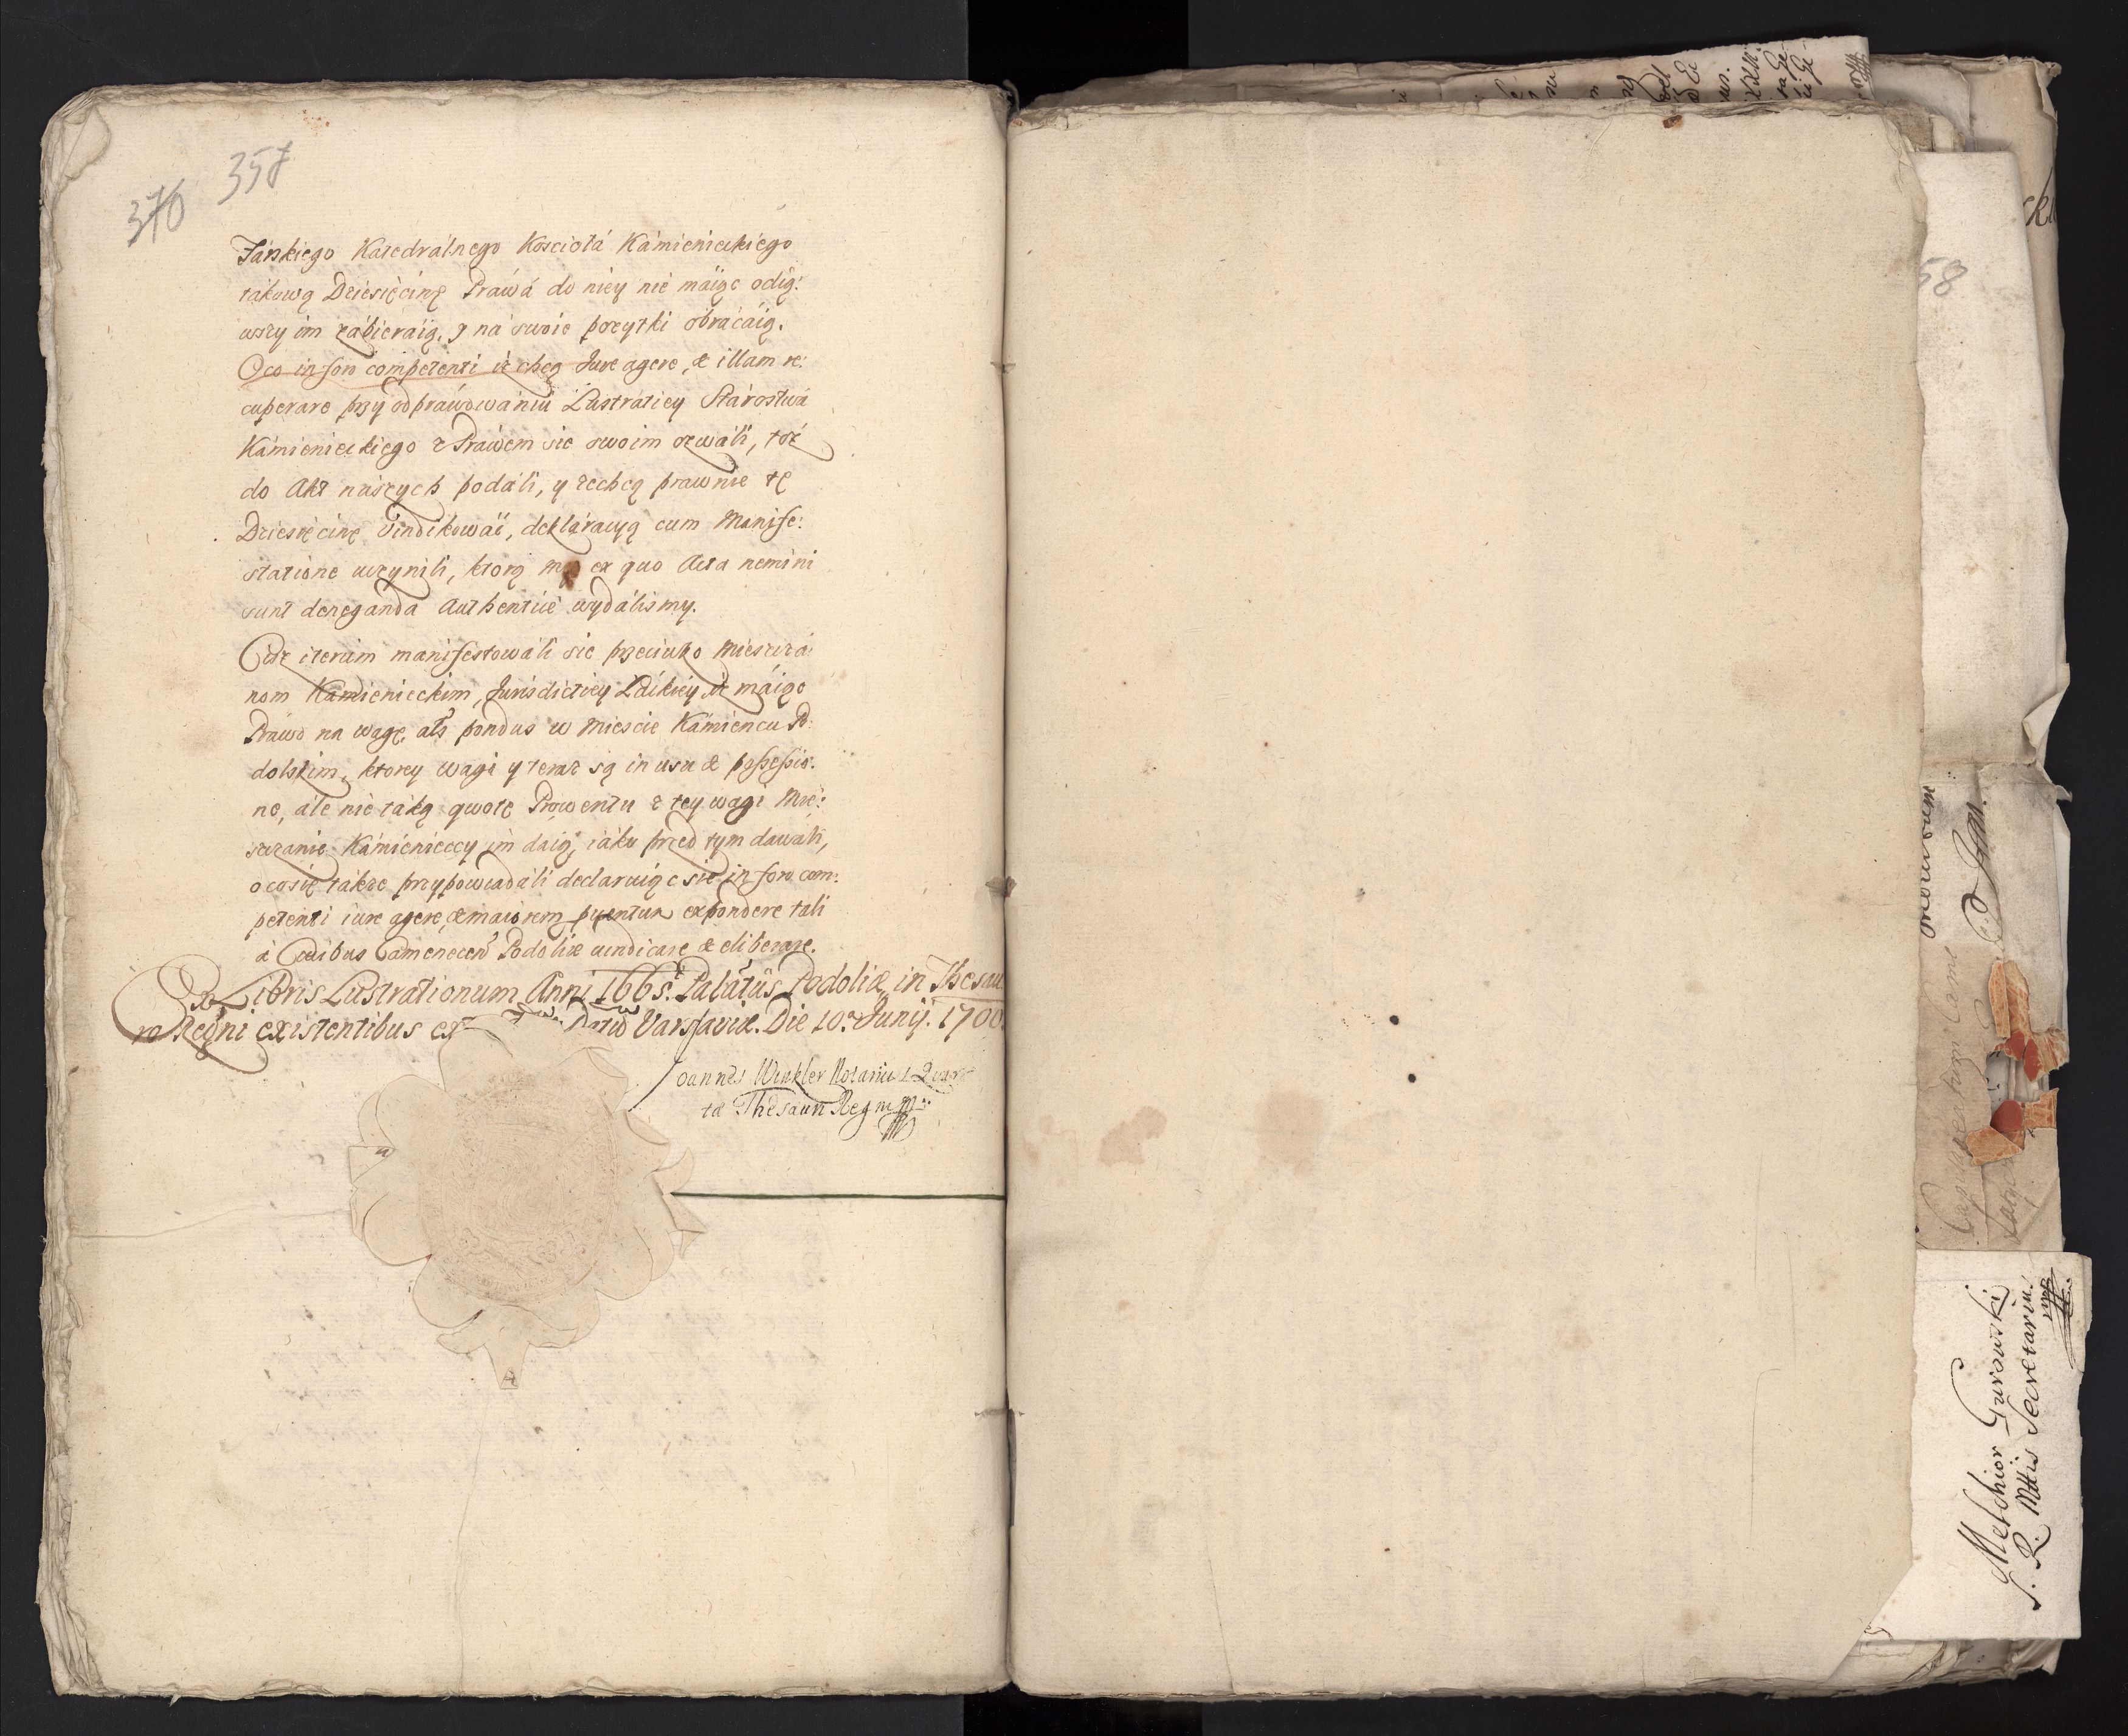 357
370
Farskiego Katedrálnego Kosciołá Kámienieckiégo
tákową Dziesięcinę Práwá do niey nie máiąc odią:
wszy im zábieráią, y ná swoie pożytki obracáią.
Oco in foro competenti iż chcą Jure agere, & illam re:
cuperare przy odpráwowániu Lustrátiey Stárostwá
Kámienieckiego z Práwem sie swoim ozwáli, toż
do Akt nászych podáli, y zechcą prawnie tę
Dziesięcinę vindikowáć, deklárácyą cum Manife:
statione uczynili, ktorą my ex quo Acta nemini
sunt deneganda Authenticè wydálismy.
Ciż iterum manifestowáli sie przeciwko Miesczá:
nom Kámienieckim, Jurisdictiey Láckiey iż máiąc
Práwo na wagę, als pondus w Miescie Kámiencu Po:
dolskim, ktorey wagi y teraz są in usu & possessio:
ne, ále nie táką qwotę Prowentu z tey wagi Mie:
sczánie Kámienieccy im dáią, iáko przed tym dawáli,
ocosię tákże przypowiadáli declaruiąc sie in foro com:
petenti iure agere, & maiorem pventum ex pondere tali
à Civibus Camenecen Podoliæ vindicare & eliberare.
Ex Libris Lustrationum Anni 1665. Palatûs Podoliæ, in Thesau
ro Regni existentibus Varsaviæ. Die 10.a Junij. 1700.
Joannes Winkler Notarius Quar
ta Thesauri Regni mpp
58
Melchior Gurowski
S. R. Mttis Secretarius.
mpp